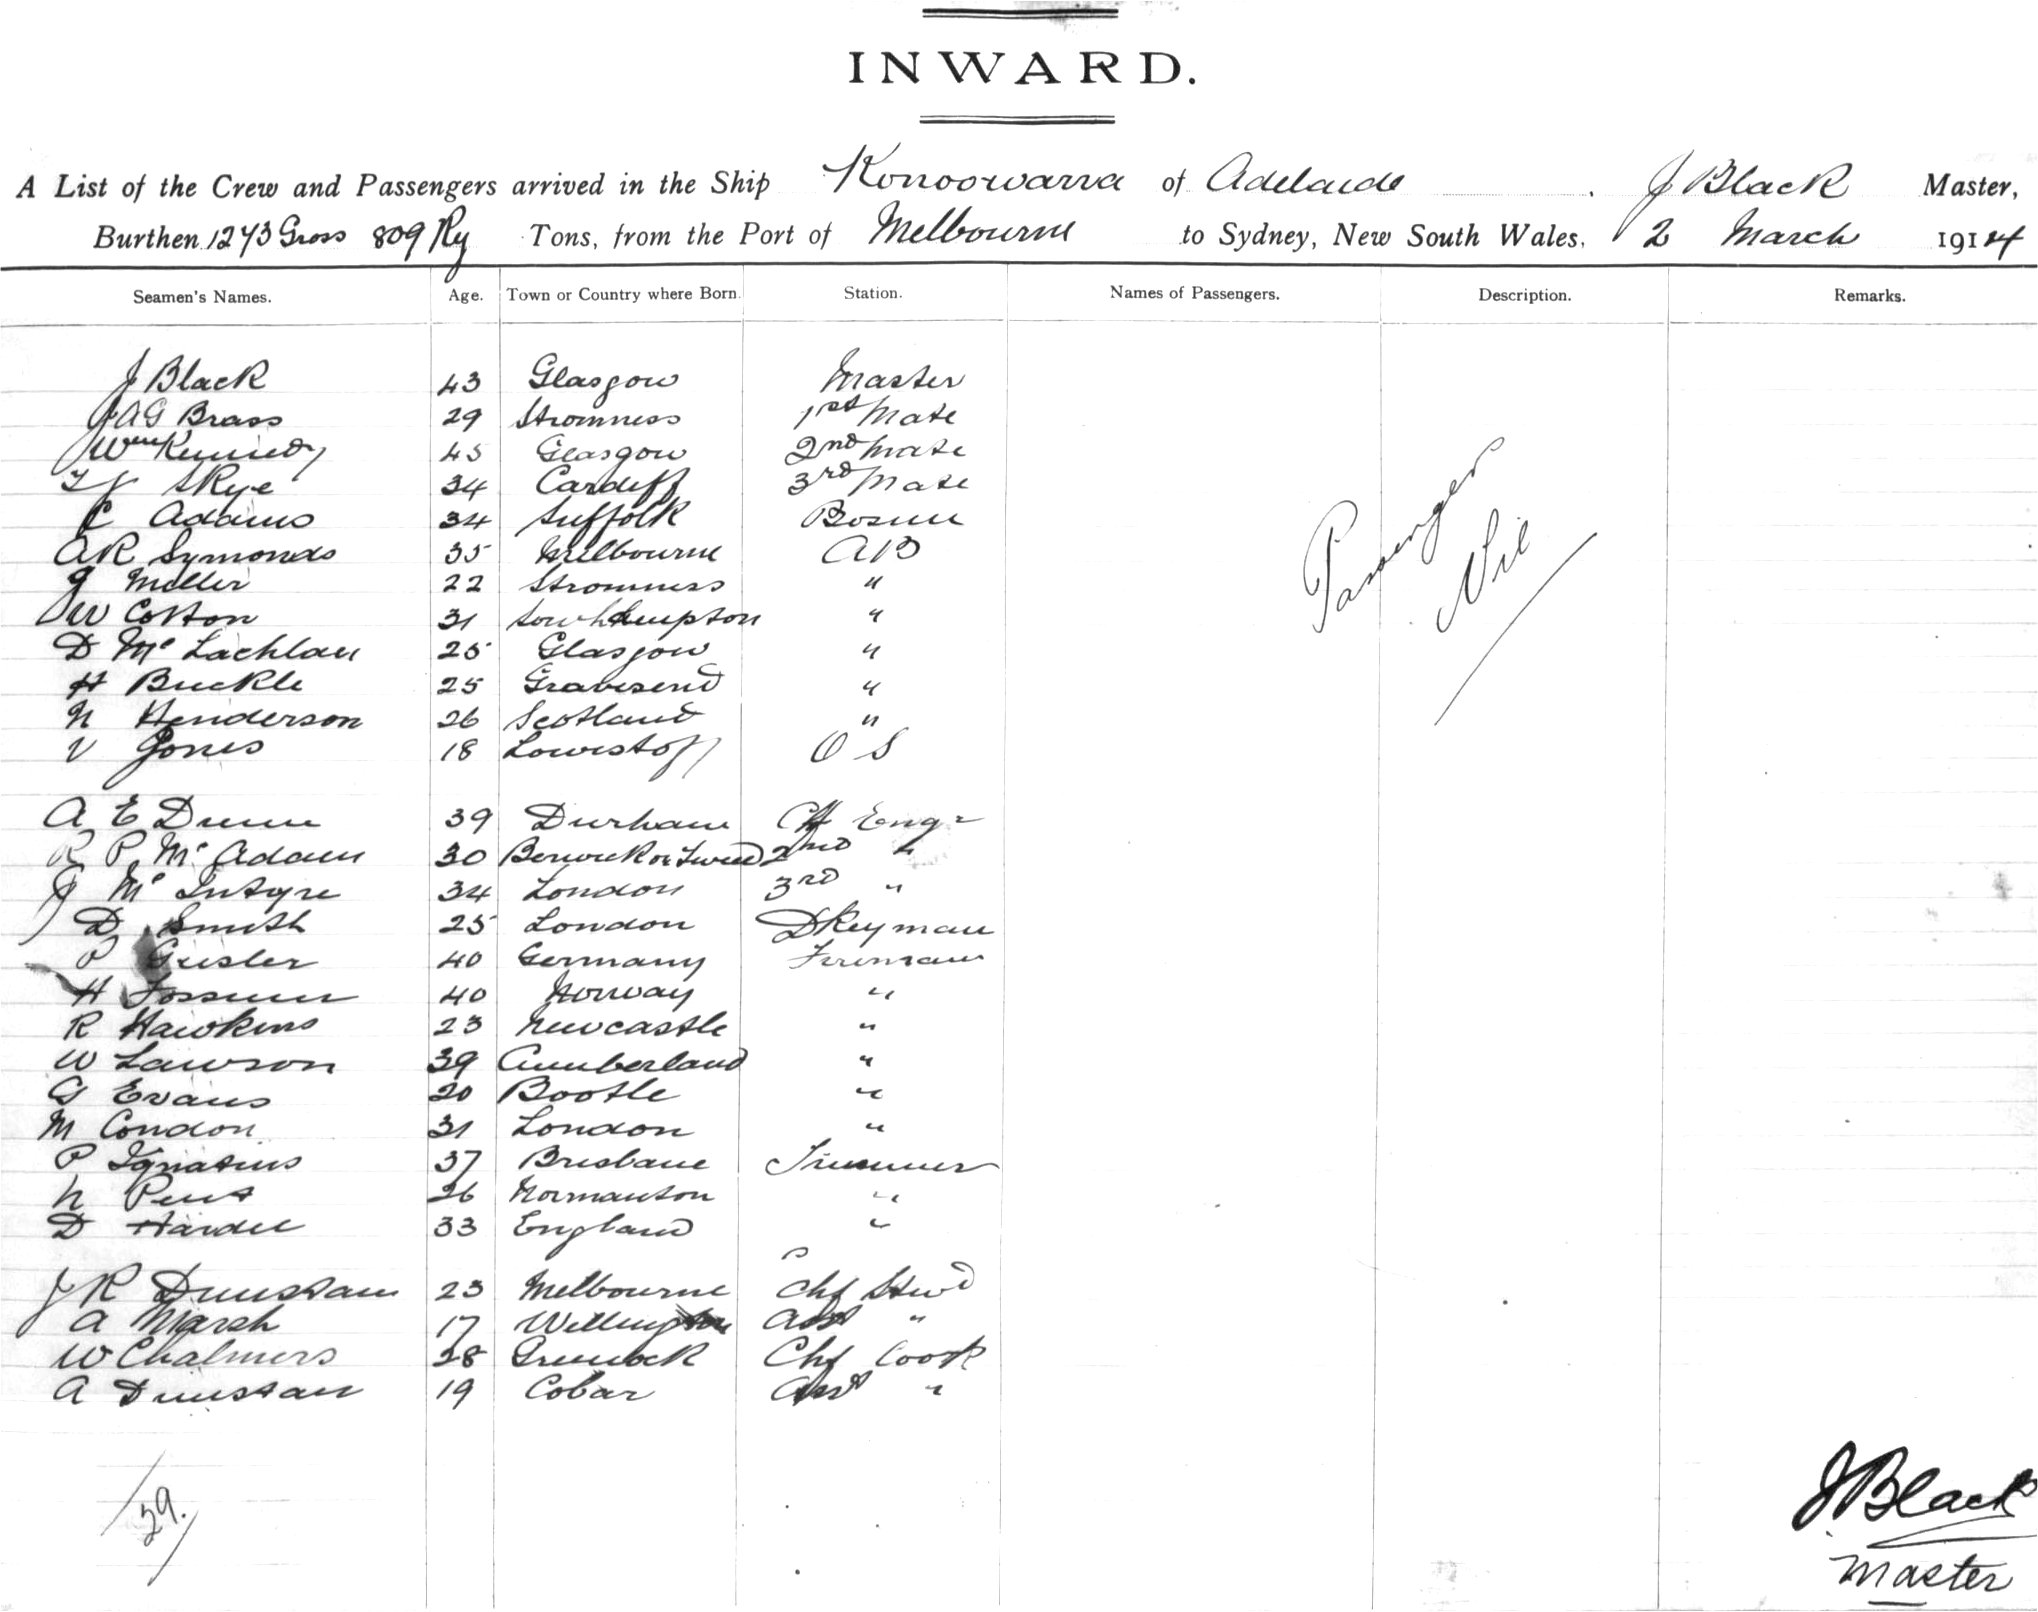 INWARD.
A List of the Crew and Passengers arrived in the Ship Konoowarra of Adelaide J Black Master,
Burthen 1273 Gross 809 Rg Tons, from the Port of Melbourne to Sydney, New South Wales, 2 March 1914
Seamen's Names. Age. Town or Country where Born. Station. Names of Passengers. Description. Remarks.
J Black 43 Glasgow Master
J A G Brass 29 Stromness 1st Mate
Wm Kennedy 45 Glasgow 2nd Mate
Skye 34 Cardiff 3rd Mate
C Adams 34 Suffolk Bosun
A R Symonds 35 Melbourne A B
J Miller 22 Stromness "
W Cotton 31 Southampton "
D Mc Lachlan 25 Glasgow "
H Buckle 25 Gravesend "
N Henderson 26 Scotland "
V Jones 18 Lowistoff O S
Passenger
Nil
A E Dunn 39 Durham CH Engr
R P Mc Adam 30 Berwick on Tweed 2nd "
J Mc Intyre 34 London 3rd "
D Smith 25 London DKeyman
P Geisler 40 Germany Fireman
H Fossum 40 Norway "
R Hawkins 23 Newcastle "
W Lawson 39 Cumberland "
G Evans 20 Bootle "
M Condon 31 London "
P Ignatius 37 Brisbane Trimmer
N Pent 26 Normanton "
D Hardee 33 England "
J R Dunstan 23 Melbourne Chf Stwd
A Marsh 17 Wellington Asst "
W Chalmers 28 Greenock Chf Cook
A Dunstan 19 Cobar Asst "
29.
J Black
Master